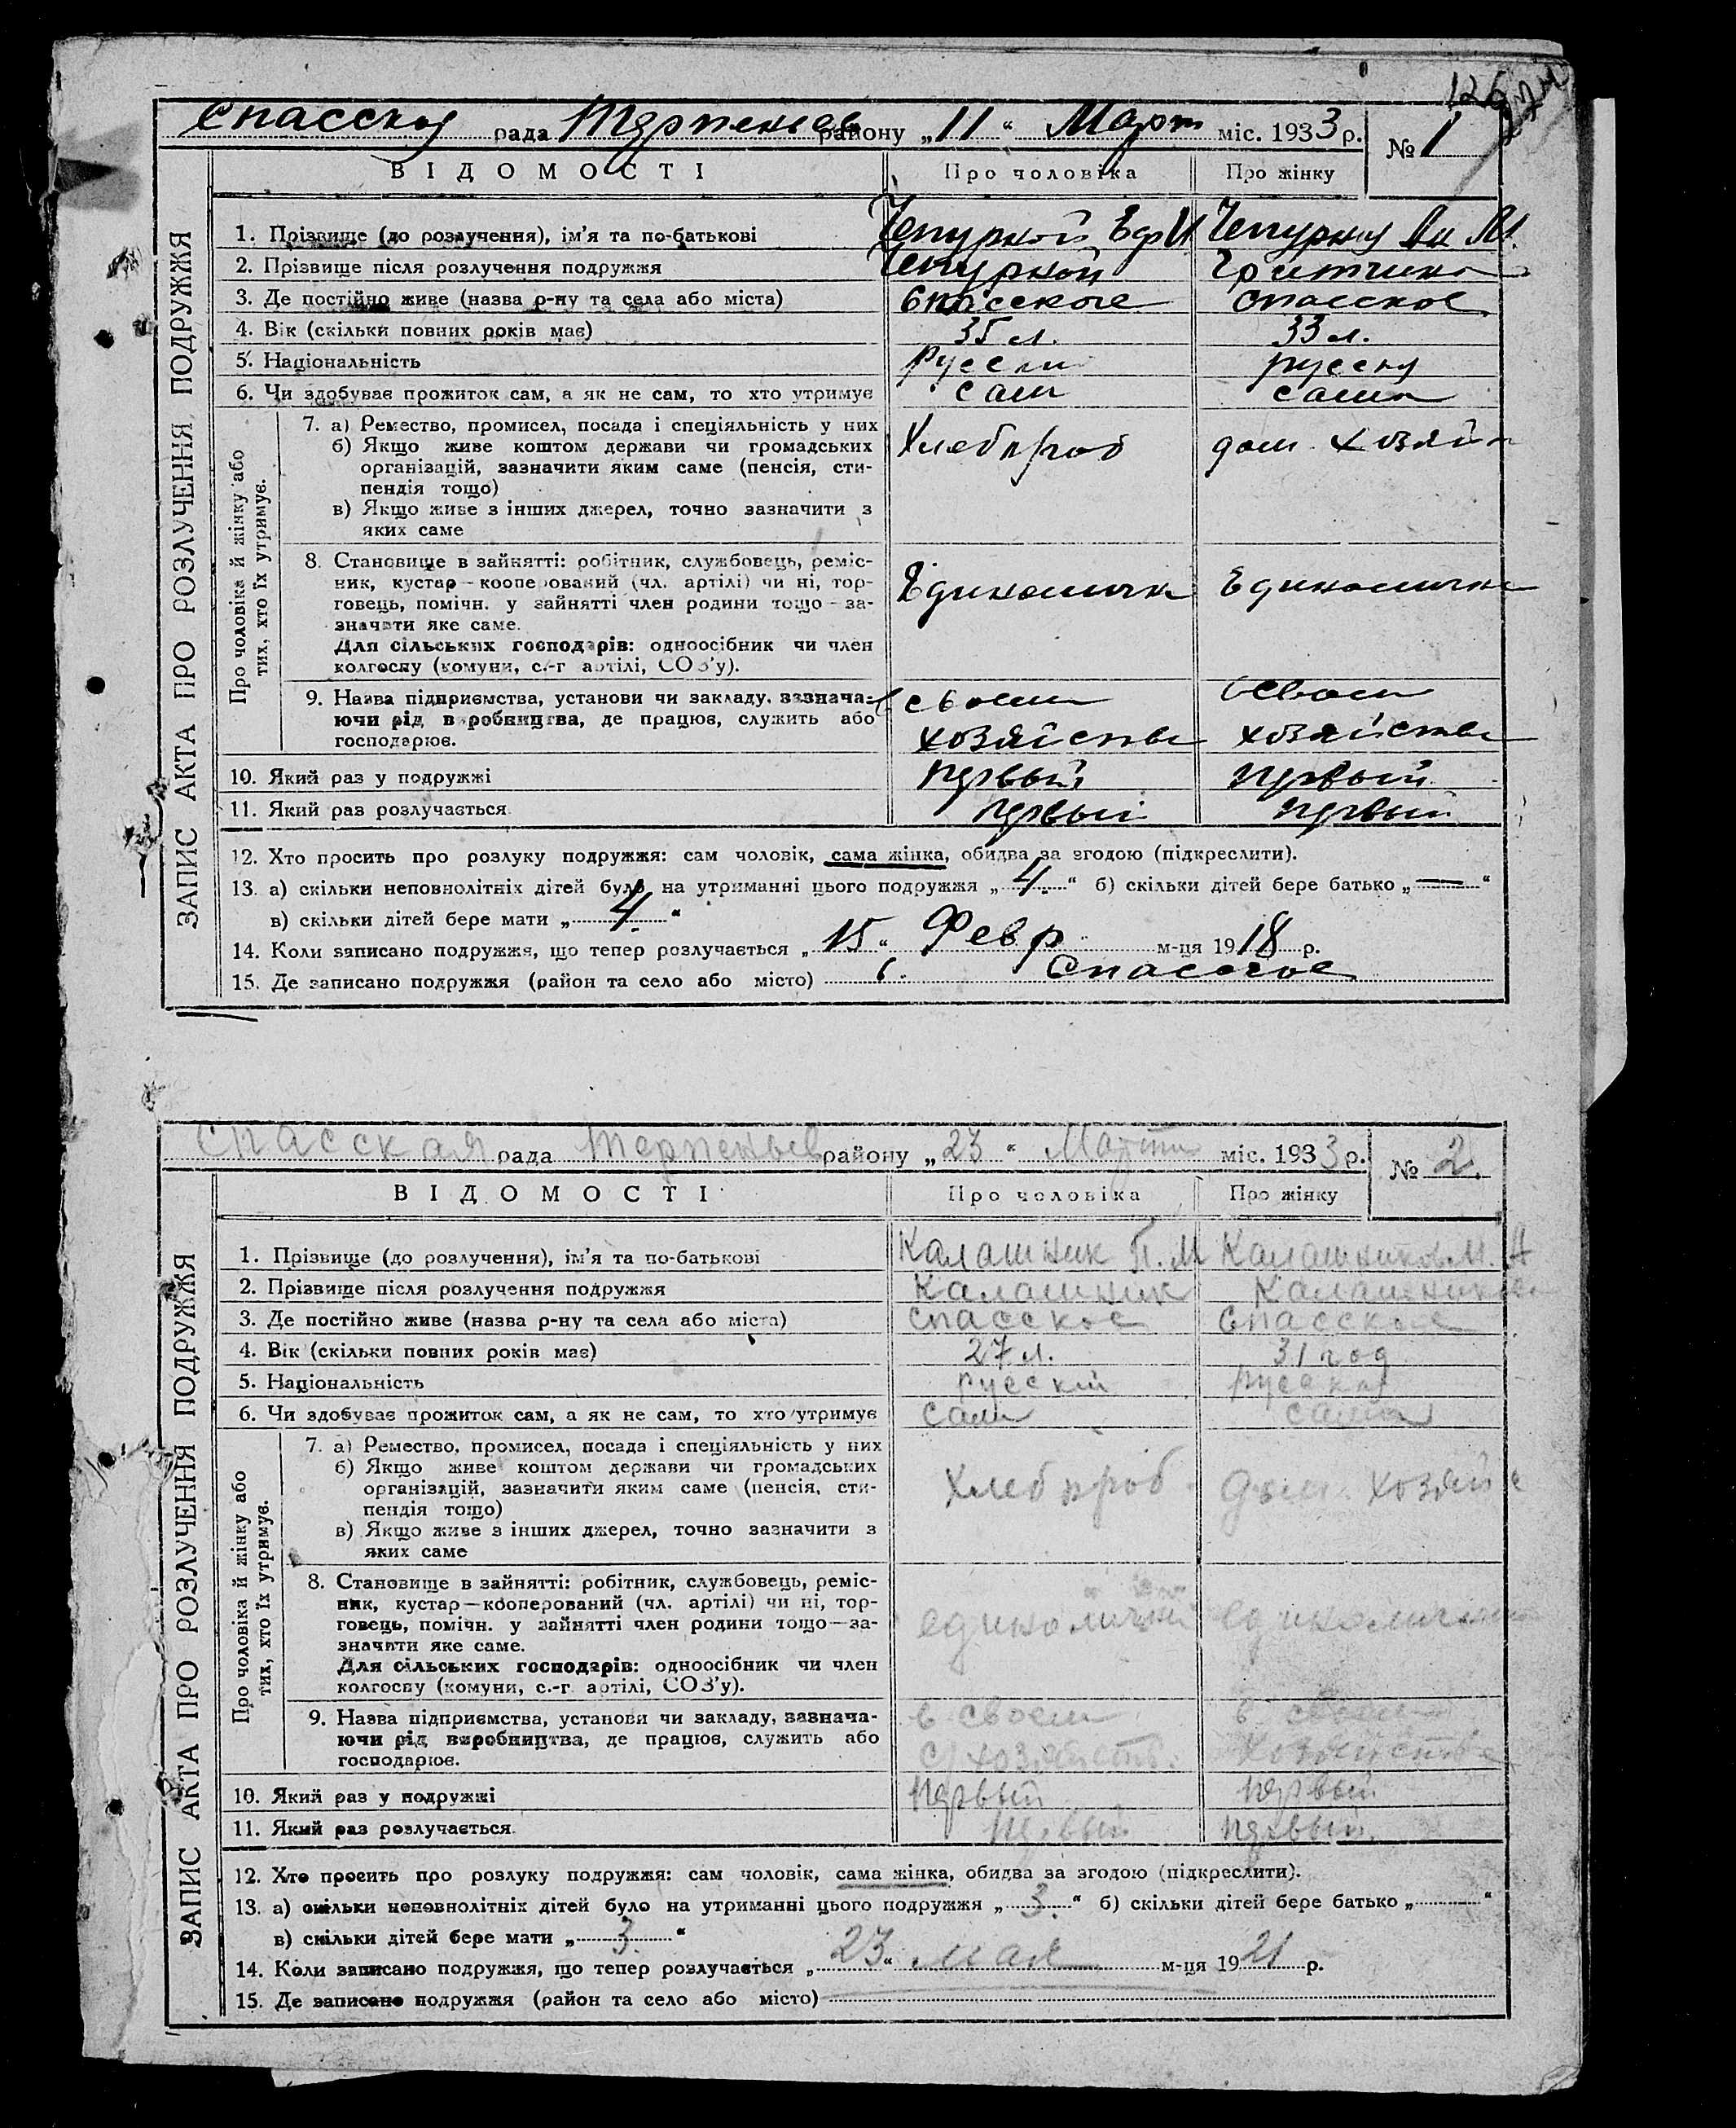 126
Спасска рада Терпеньев району „11“ Март міс. 1933 р. № 1
ВІДОМОСТІ Про чоловіка Про жінку
ЗАПИС АКТА ПРО РОЗЛУЧЕННЯ ПОДРУЖЖЯ
1. Прізвище (до розлучення), ім'я та по-батькові Чепурной Еф И Чепурну Ан М.
2. Прізвище після розлучення подружжя Чепурной
3. Де постійно живе (назва р-ну та села або міста) Спасское Спасское
4. Вік (скільки повних років має) 35 л. 33 л.
5. Національність русски русску
6. Чи здобуває прожиток сам, а як не сам, то хто утримує сам сама
Про чоловіка й жінку або
тих, хто їх утримує.
7. а) Ремество, промисел, посада і спеціяльність у них
б) Якщо живе коштом держави чи громадських
організацій, зазначити яким саме (пенсія, сти-
пендія тощо)
в) Якщо живе з інших джерел, точно зазначити з
яких саме
Хлебороб дом хозяй
8. Становище в зайнятті: робітник, службовець, реміс-
ник, кустар—кооперований (чл. артілі) чи ні, тор-
говець, помічн. у зайнятті член родини тощо—за-
значити яке саме.
Для сільських господарів: одноосібник чи член
колгоспу (комуни, с.-г. артілі, СОЗ'у).
Единоличн Единоличн
9. Назва підприємства, установи чи закладу, зазнача-
ючи рід виробництва, де працює, служить або
господарює.
в своем в своем
хозяйстве хозяйстве
10. Який раз у подружжі первый первый
11. Який раз розлучається первый первый
12. Хто просить про розлуку подружжя: сам чоловік, сама жінка, обидва за згодою (підкреслити).
13. а) скільки неповнолітніх дітей було на утриманні цього подружжя „4.“ б) скільки дітей бере батько „—“
в) скільки дітей бере мати „4.“
14. Коли записано подружжя, що тепер розлучається „15“ Февр м-ця 1918 р.
15. Де записано подружжя (район та село або місто) с. Спасское
Спасская рада Терпеньев району „23“ Марта міс. 1933 р. № 2.
ВІДОМОСТІ Про чоловіка Про жінку
ЗАПИС АКТА ПРО РОЗЛУЧЕННЯ ПОДРУЖЖЯ
1. Прізвище (до розлучення), ім'я та по-батькові Калашник П. М Калашникова М. А
2. Прізвище після розлучення подружжя Калашник Калашникова
3. Де постійно живе (назва р-ну та села або міста) Спасское Спасское
4. Вік (скільки повних років має) 27 л. 31 год
5. Національність русский русская
6. Чи здобуває прожиток сам, а як не сам, то хто утримує сам сама
Про чоловіка й жінку або
тих, хто їх утримує.
7. а) Ремество, промисел, посада і спеціяльність у них
б) Якщо живе коштом держави чи громадських
організацій, зазначити яким саме (пенсія, сти-
пендія тощо)
в) Якщо живе з інших джерел, точно зазначити з
яких саме
Хлебороб дом. хозяйс
8. Становище в зайнятті: робітник, службовець, реміс-
ник, кустар—кооперований (чл. артілі) чи ні, тор-
говець, помічн. у зайнятті член родини тощо—за-
значити яке саме.
Для сільських господарів: одноосібник чи член
колгоспу (комуни, с.-г. артілі, СОЗ'у).
единоличн единоличн
9. Назва підприємства, установи чи закладу, зазнача-
ючи рід виробництва, де працює, служить або
господарює.
в своем в своем
с/хозяйств. хозяйстве
10. Який раз у подружжі первый первый
11. Який раз розлучається первый первый
12. Хто просить про розлуку подружжя: сам чоловік, сама жінка, обидва за згодою (підкреслити).
13. а) скільки неповнолітніх дітей було на утриманні цього подружжя „3.“ б) скільки дітей бере батько „“
в) скільки дітей бере мати „3.“
14. Коли записано подружжя, що тепер розлучається „23“ мая м-ця 1921 р.
15. Де записано подружжя (район та село або місто)